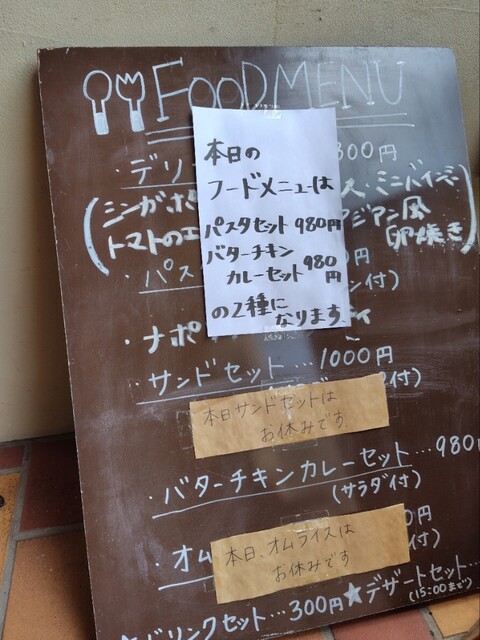 FOOD MENU
本日の
フードメニューは
パスタセット 980円
バターチキン
カレーセット 980円
の2種に
なります。
・デリ 300円
(シンガポ ス・ミニバインミー
トマトのエ アジアン風
卵焼き)
・パス ン付)
・ナポ
・サンドセット…1000円
付)
本日サンドセットは
お休みです
・バターチキンカレーセット…980円
(サラダ付)
・オム 0円
付)
本日、オムライスは
お休みです
★ドリンクセット…300円 ★デザートセット…
(15:00まで)